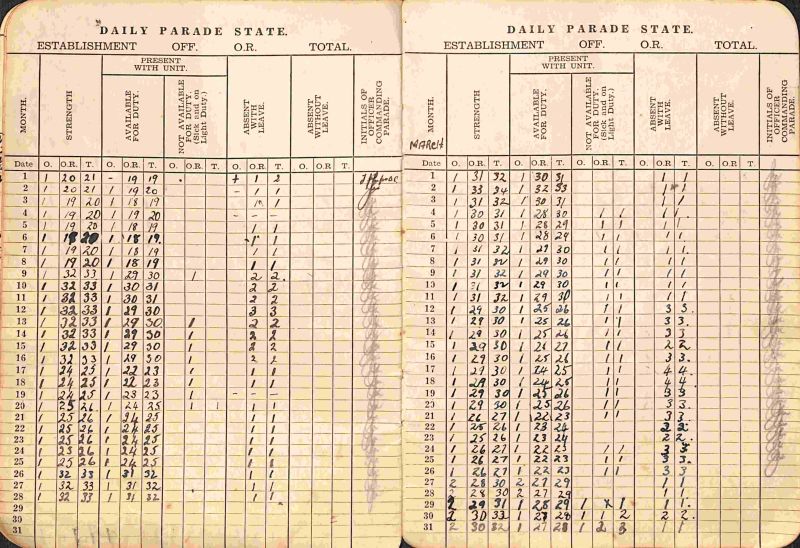 DAILY PARADE STATE.
ESTABLISHMENT OFF. O.R. TOTAL.
MONTH. STRENGTH PRESENT WITH UNIT. AVAILABLE FOR DUTY. NOT AVAILABLE FOR DUTY (Sick and on Light Duty.) ABSENT WITH LEAVE. ABSENT WITHOUT LEAVE. INITIALS OF OFFICER COMMANDING PARADE.
Date O. O.R. T. O. O.R. T. O. O.R. T. O. O.R. T. O. O.R. T.
1 1 20 21 - 19 19 1 2
2 20 21 1 19 20 - 1 1
3 1 19 20 1 18 19
4 19 20 1 19 20 - - -
5 1 19 20 1 18 19 1 1
6 1 18 19 1 1
7 19 20 1 18 19 1 1
8 1 19 20 1 18 19 1 1
9 1 32 33 1 29 30 1 2 2
10 1 32 33 1 30 31 2 2
11 1 32 33 1 30 31 2 2
12 1 32 33 1 29 30 3 3
13 1 32 33 1 29 30 1 2 2
14 1 32 33 1 29 30 1 2 2
15 1 32 33 1 29 30 1 2 2
16 1 32 33 1 29 30 1 2 2
17 1 24 25 1 22 23 1 1
18 1 24 25 1 22 23 1 1
19 1 24 25 1 - - -
20 1 25 26 1 24 25 1 1 1 1
21 1 25 26 1 24 25 1 1
22 1 25 26 1 24 25 1 1
23 1 25 26 1 24 25 1 1
24 1 25 26 1 24 25 1 1
25 1 25 26 1 24 25 1 1
26 1 32 33 1 31 32 1 1
27 1 32 33 1 31 32 1 1
28 1 32 33 1 31 32 1 1
29
30
31
DAILY PARADE STATE.
ESTABLISHMENT OFF. O.R. TOTAL.
MONTH. STRENGTH PRESENT WITH UNIT. AVAILABLE FOR DUTY. NOT AVAILABLE FOR DUTY (Sick and on Light Duty.) ABSENT WITH LEAVE. ABSENT WITHOUT LEAVE. INITIALS OF OFFICER COMMANDING PARADE.
MARCH
Date O. O.R. T. O. O.R. T. O. O.R. T. O. O.R. T. O. O.R. T.
1 1 31 32 1 30 31 1 1
2 1 33 34 1 32 33 1 1
3 1 31 32 1 30 31 1 1
4 1 30 31 1 28 30 1 1 1 1
5 1 30 31 1 28 29 1 1 1 1
6 1 30 31 1 28 29 1 1 1 1
7 1 31 32 1 29 30 1 1 1 1
8 1 31 32 1 29 30 1 1 1 1
9 1 31 32 1 29 30 1 1 1 1
10 1 31 32 1 29 30 1 1 1 1
11 1 31 32 1 29 30 1 1 1 1
12 1 29 30 1 25 26 1 1 3 3
13 1 29 30 1 25 26 1 1 3 3
14 1 29 30 1 25 26 1 1 3 3
15 1 29 30 1 26 27 1 1 2 2
16 1 29 30 1 25 26 1 1 3 3
17 1 29 30 1 24 25 1 1 4 4
18 1 29 30 1 24 25 1 1 4 4
19 1 29 30 1 25 26 1 1 3 3
20 1 29 30 1 25 26 1 1 3 3
21 1 26 27 1 22 23 1 1 3 3
22 1 25 26 1 23 24 2 2
23 1 25 26 1 23 24 2 2
24 1 26 27 1 22 23 1 1 3 3
25 1 26 27 1 22 23 1 1 3 3
26 1 26 27 1 22 23 1 1 3 3
27 2 28 30 2 27 29 1 1
28 2 28 30 2 27 29 1 1
29 2 29 31 1 28 29 1 1 1 1
30 2 1 27 28 1 1 2 2 2
31 2 30 32 1 27 28 1 2 3 1 1